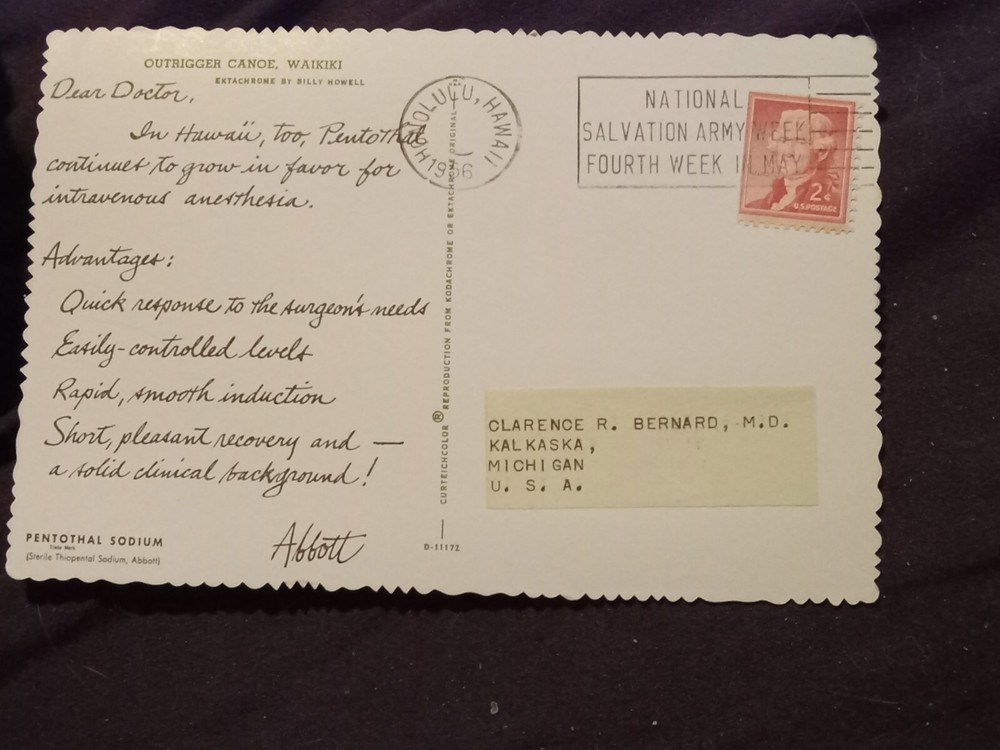 OUTRIGGER CANOE, WAIKIKI
EKTACHROME BY BILLY HOWELL
Dear Doctor,
In Hawaii, too, Pentothal
continues to grow in favor for
intravenous anesthesia.
Advantages:
Quick response to the surgeon's needs
Easily-controlled levels
Rapid, smooth induction
Short, pleasant recovery and —
a solid clinical background!
Abbott
PENTOTHAL SODIUM
Trade Mark
(Sterile Thiopental Sodium, Abbott)
CURTEICHCOLOR® REPRODUCTION FROM KODACHROME OR EKTACHROME ORIGINAL
D-11172
HONOLULU, HAWAII
1956
NATIONAL
SALVATION ARMY WEEK
FOURTH WEEK IN MAY
2¢
U.S. POSTAGE
CLARENCE R. BERNARD, M.D.
KALKASKA,
MICHIGAN
U. S. A.